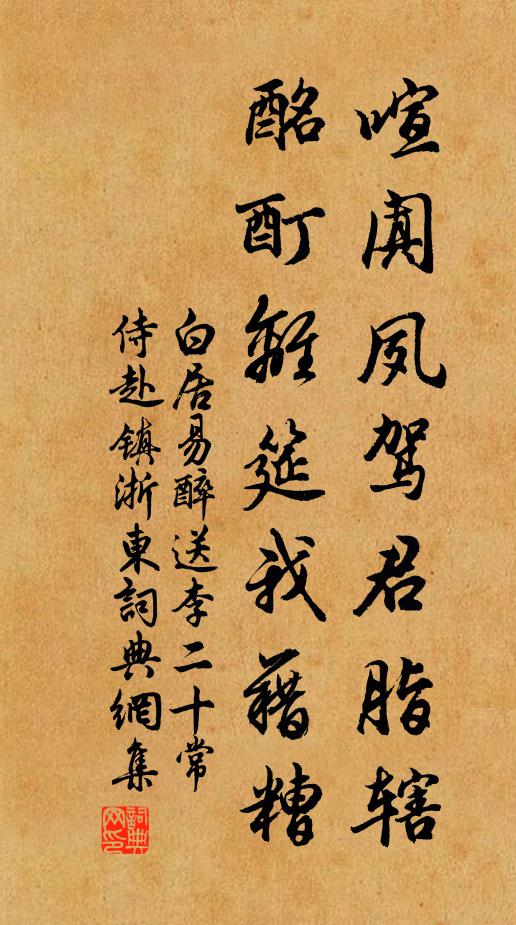 喧阗夙驾君脂辖
酩酊離筵我藉糟
白居易醉送李二十常
侍赴鎮浙東詞典網集
詞典网印